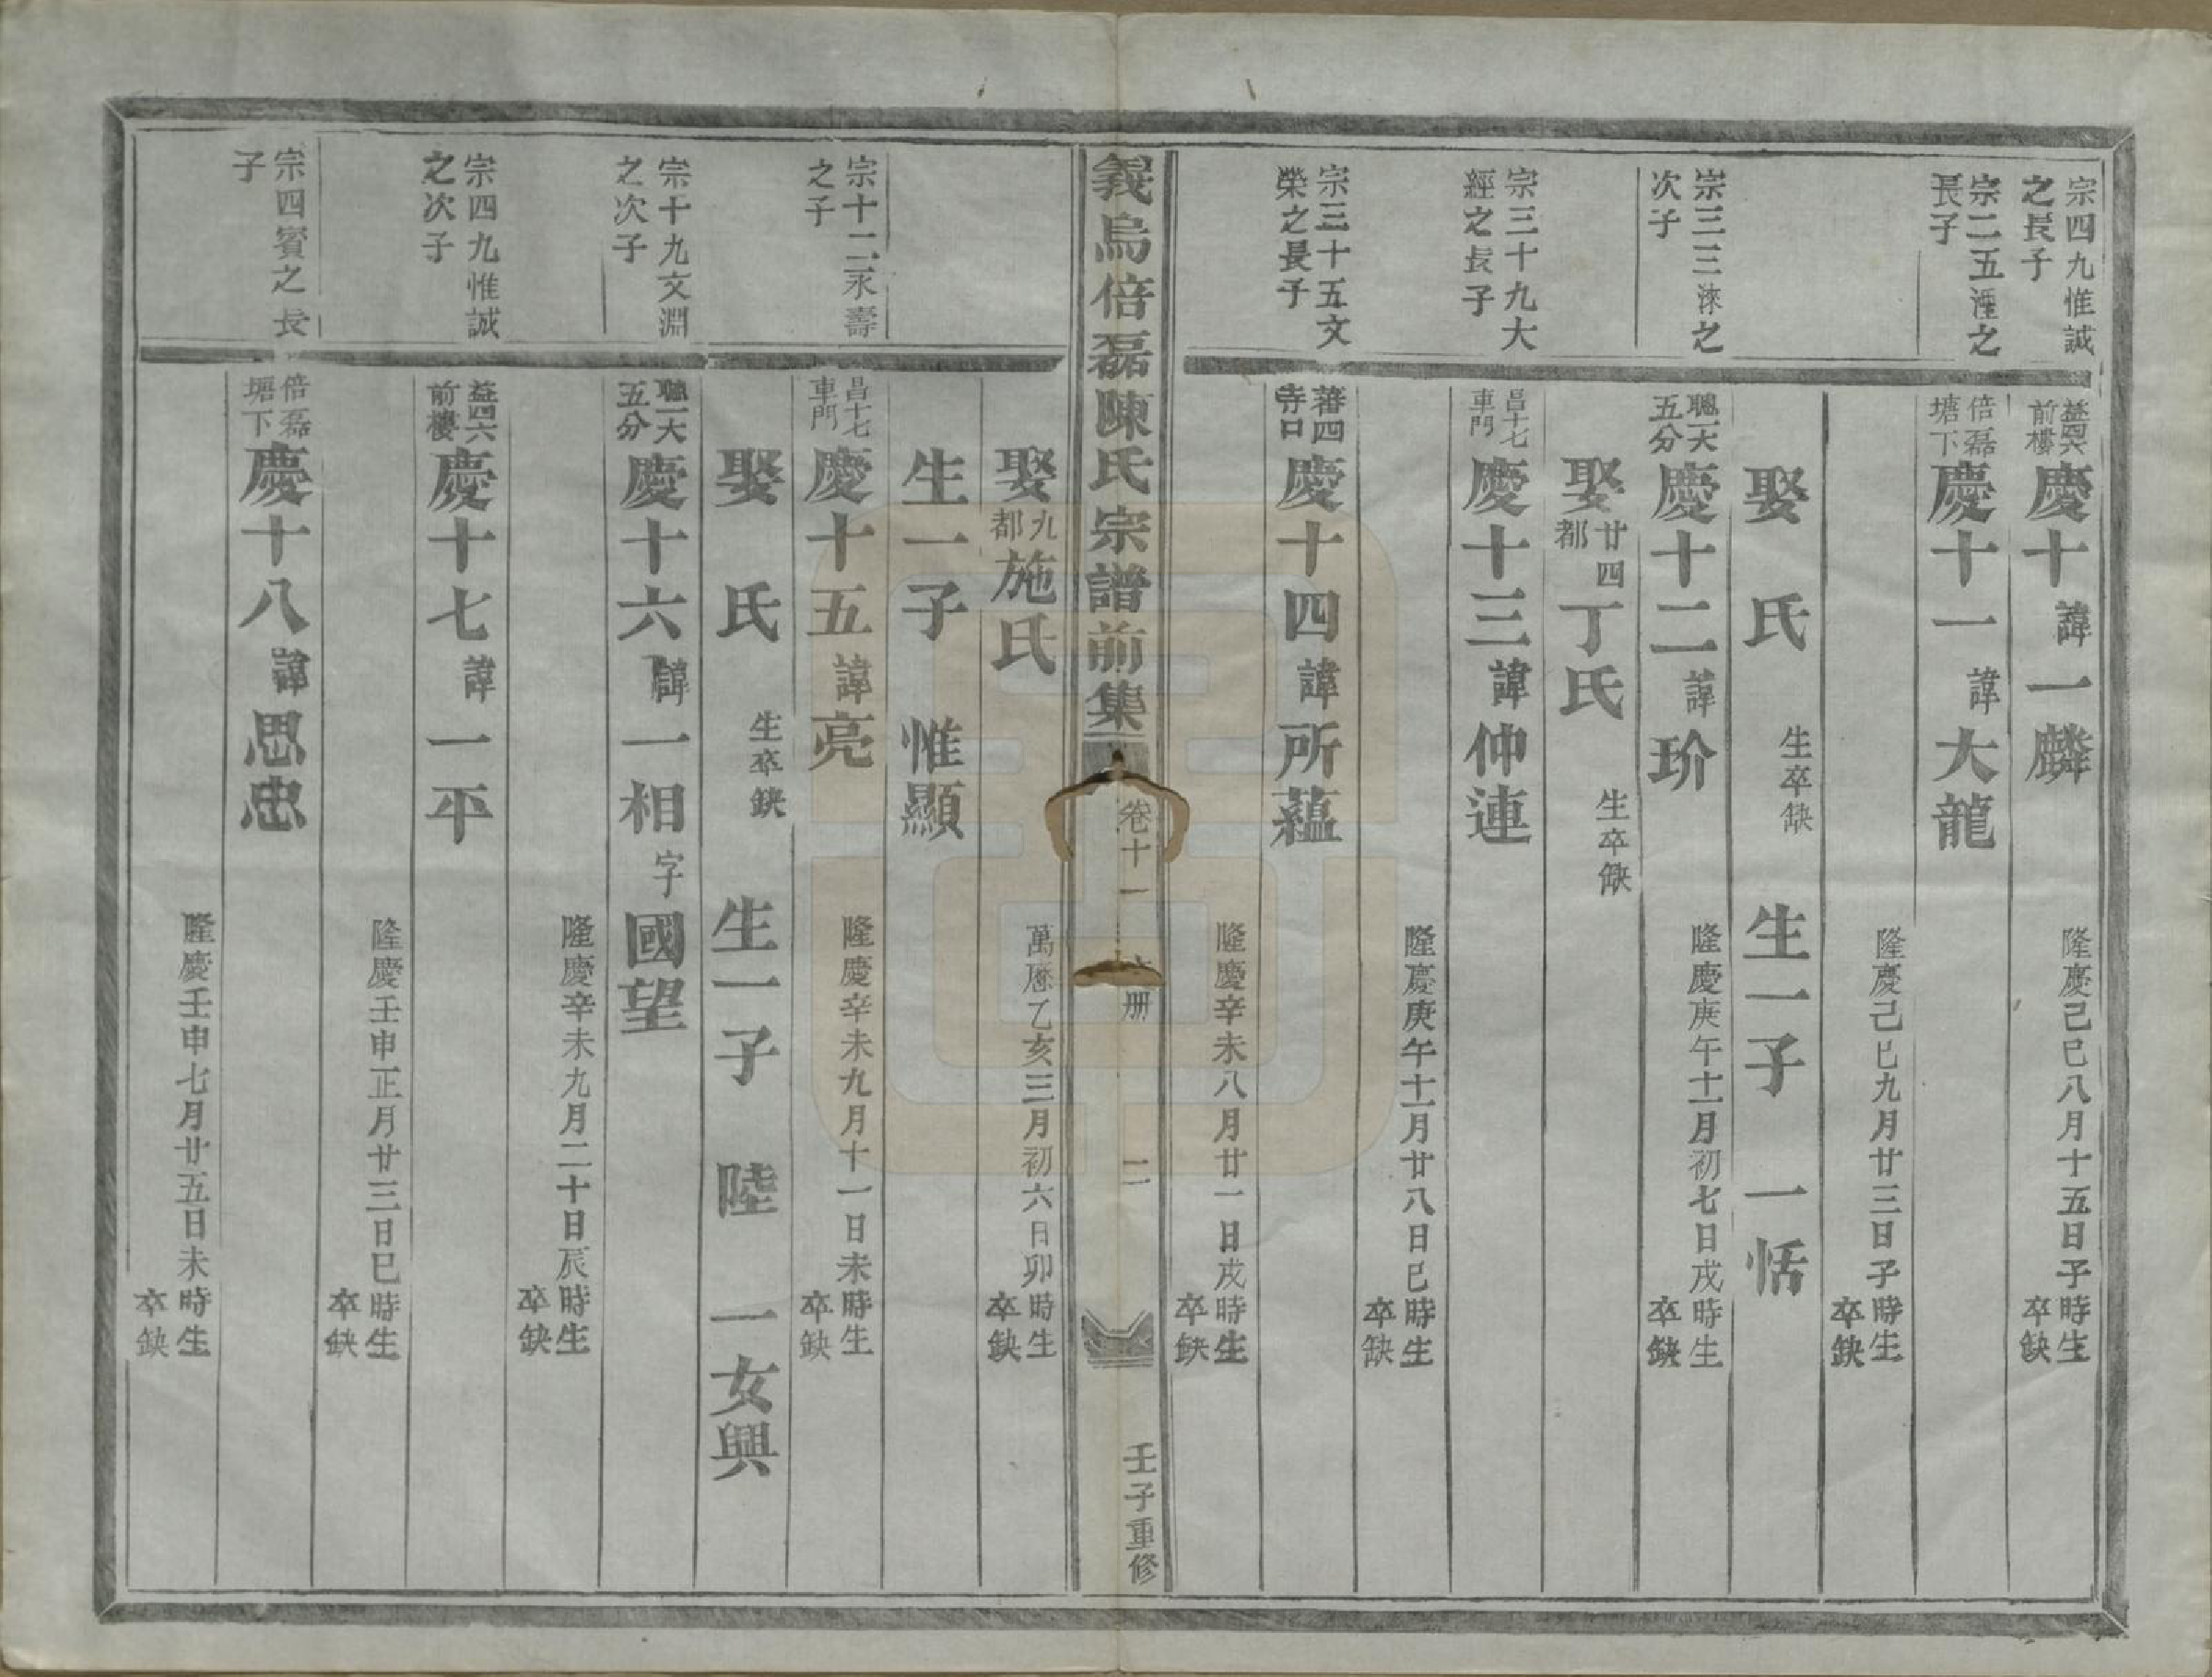 宗四九惟誠之長子
益四六前樓慶十諱一麟 隆慶己巳八月十五日子時生卒缺
宗二五湹之長子
倍磊塘下慶十一諱大龍
隆慶己巳九月廿三日子時生卒缺
娶 氏 生卒缺 生一子 一恬
宗三三淶之次子
聰一大五分慶十二諱玠 隆慶庚午十一月初七日戌時生卒缺
娶廿四都丁氏 生卒缺
宗三十九大經之長子
昌十七車門慶十三諱仲連
隆慶庚午十一月廿八日巳時生卒缺
宗三十五文榮之長子
蕃四寺口慶十四諱所蘊
隆慶辛未八月廿一日戌時生卒缺
義烏倍磊陳氏宗譜前集 卷十一 册 二 壬子重修
娶九都施氏 萬厯乙亥三月初六日卯時生卒缺
生一子 惟顯
宗十二永壽之子
昌十七車門慶十五諱亮 隆慶辛未九月十一日未時生卒缺
娶 氏 生卒缺 生一子 陸 一女興
宗十九文淵之次子
聰一大五分慶十六諱一相字國望
隆慶辛未九月二十日辰時生卒缺
宗四九惟誠之次子
益四六前樓慶十七諱一平
隆慶壬申正月廿三日巳時生卒缺
宗四賓之長子
倍磊塘下慶十八諱思忠
隆慶壬申七月廿五日未時生卒缺